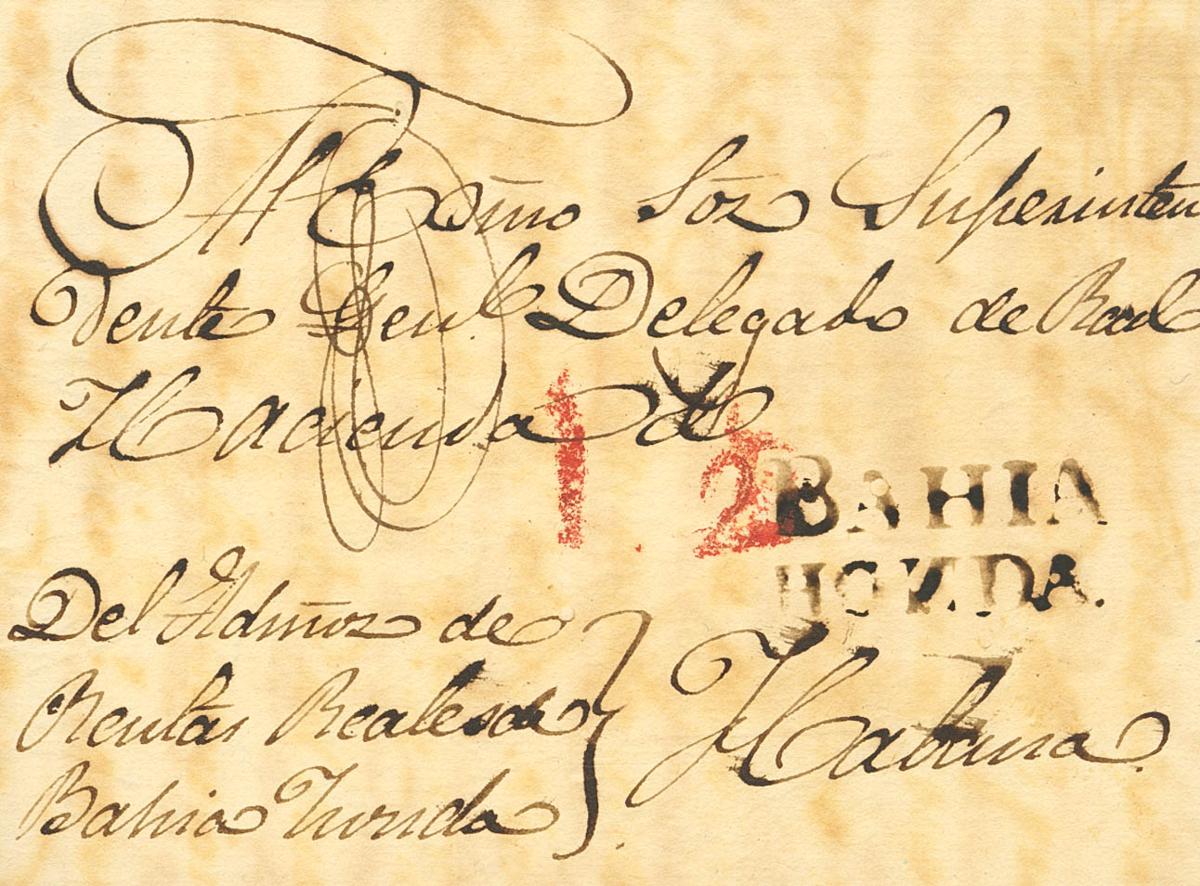 Al Exmo Sor Superinten
dente Genl Delegado de Real
Hacienda de
1 2
BAHIA
HONDA.
Del Admor de
Rentas Reales de
Bahia honda
Habana